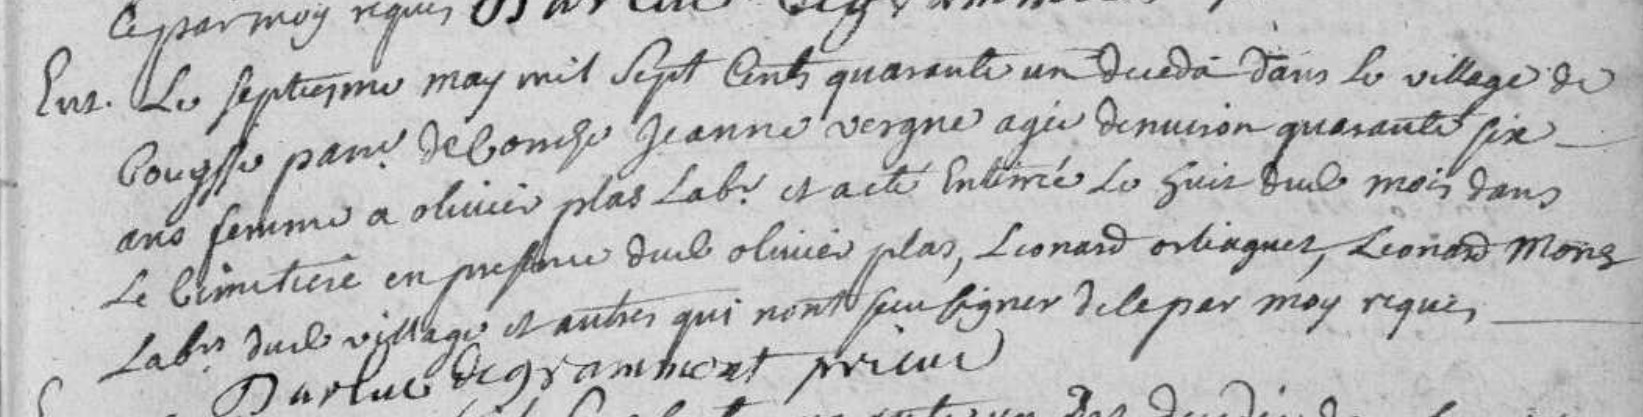 Ce par moy requis
Ent. Le septiesme may mil sept Cents quarante un deceda dans le village de
parre. de Jeanne vergne agée denuiron quarante six
ans femme a oliuier plas Labr. et a ete Enterrée le huit dud mois dans
Le Cimetiere en presence dud oliuier plas, Leonard ortiaguet, Leonard
Labrs dud village et autres qui nont sceu signer de ce par moy requis
Darluc de grammont prieur